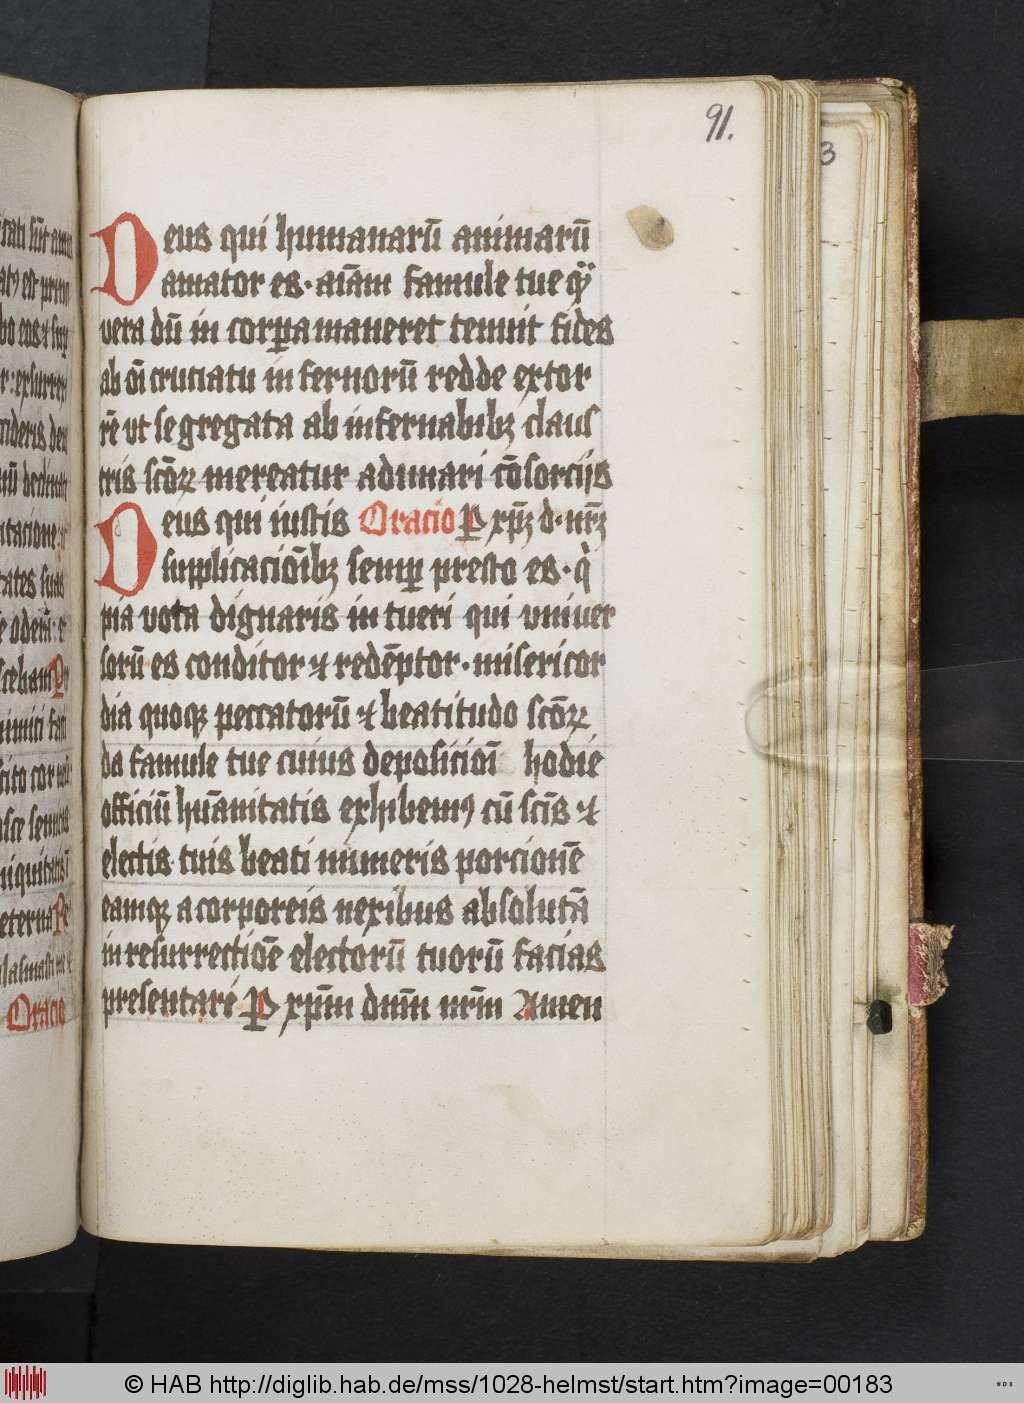 91.
3
Deus qui humanarū animarū
amator es · aīam famule tue q̄
vera dū in corpꝑa maneret tenuit fides
ab oī cruciatu in fernorū redde extor
rē vt segregata ab infernabibꝫ claus
tris scōꝝ mereatur adunari cōsorcijs
Deus qui iustis Oracio P xp̄ꝫ d · nr̄ꝫ
supplicacioībꝫ semꝑ presto es · q̇
pia vota dignaris in tueri qui vniuer
sorū es conditor ⁊ redēptor · misericor
dia quoqꝫ peccatorū ⁊ beatitudo scōꝝ
da famule tue cuius deposicioī hodie
officiū hūanitatis exhibemꝰ cū scīs ⁊
electis tuis beati numeris porcionē
eamqꝫ a corporeis nexibus absolutā
in resurrectiōe electorū tuorū facias
presentare P xp̄m dn̄m nr̄m Amen
Oracio
© HAB http://diglib.hab.de/mss/1028-helmst/start.htm?image=00183